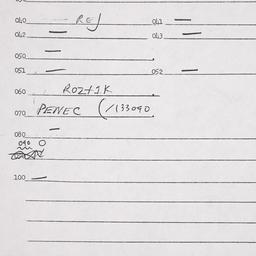 040 — REJ 041 —
042 — 043 —
050 —
051 — 052 —
060 ROZTIK
070 PEWEC (/133090
080 —
090
100 —